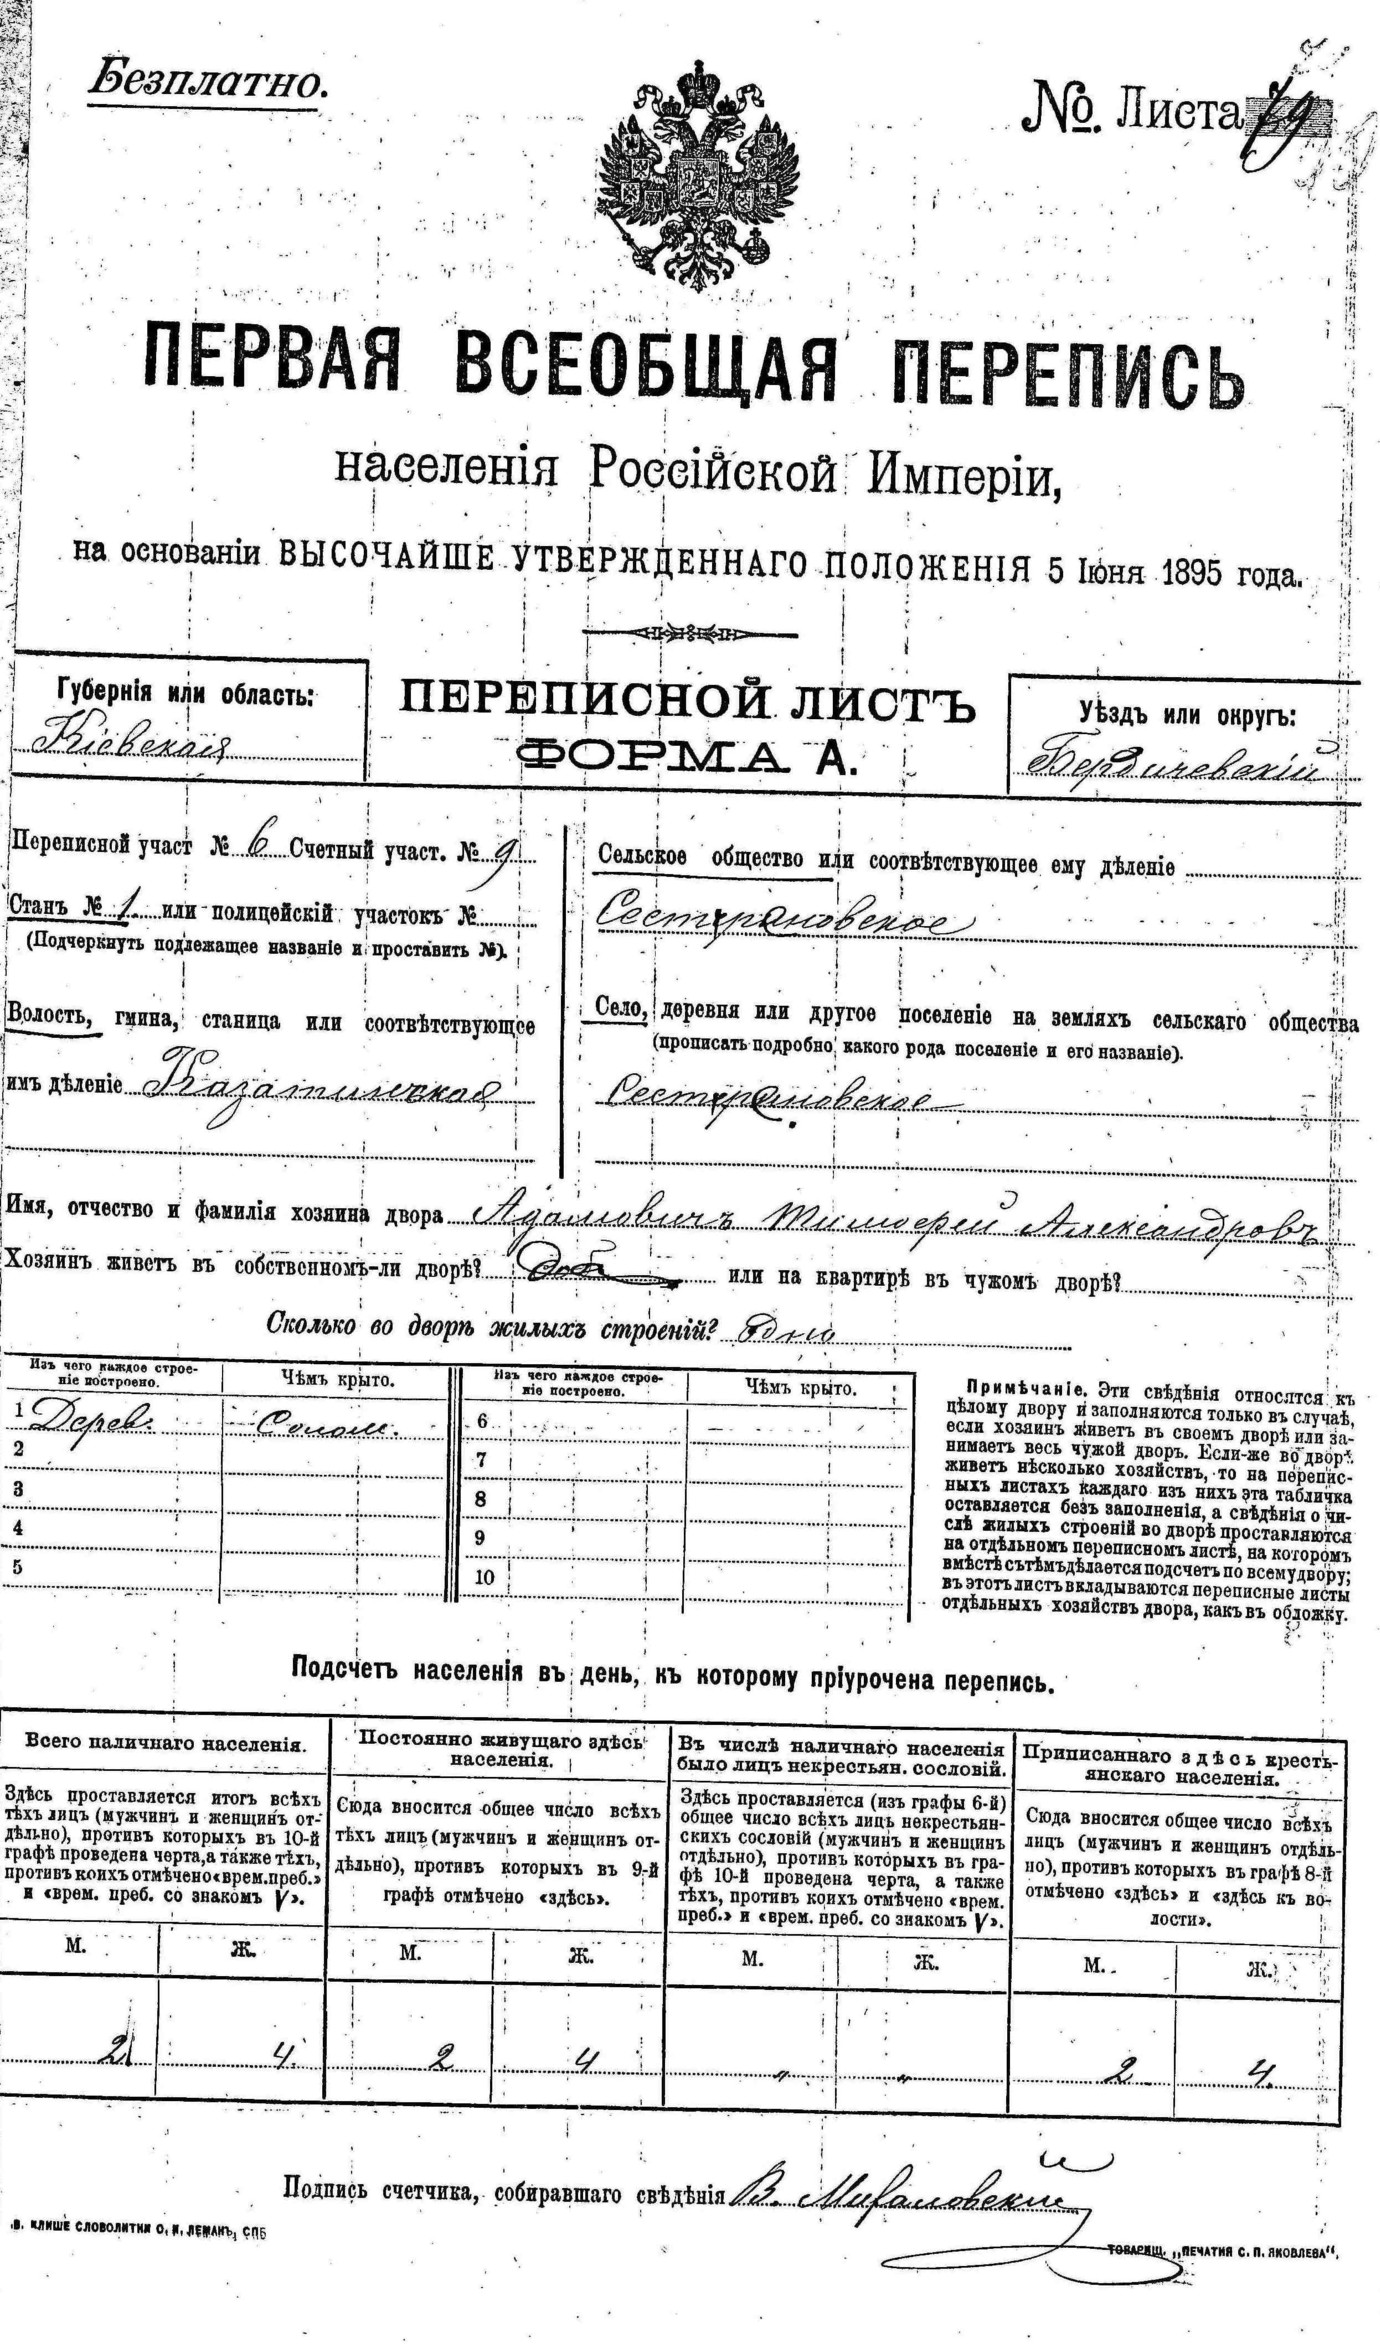 Безплатно.
№. Листа 79
ПЕРВАЯ ВСЕОБЩАЯ ПЕРЕПИСЬ
населенія Россійской Имперіи,
на основаніи ВЫСОЧАЙШЕ УТВЕРЖДЕННАГО ПОЛОЖЕНІЯ 5 Іюня 1895 года.
Губернія или область:
Кіевская
ПЕРЕПИСНОЙ ЛИСТЪ
ФОРМА А.
Уѣздъ или округъ:
Бердичевскій
Переписной участ № 6 Счетный участ. № 9
Станъ № 1. или полицейскій участокъ №
(Подчеркнуть подлежащее названіе и проставить №).
Волость, гмина, станица или соотвѣтствующее
имъ дѣленіе Казатинская
Сельское общество или соотвѣтствующее ему дѣленіе
Сестрановское
Село, деревня или другое поселеніе на земляхъ сельскаго общества
(прописать подробно, какого рода поселеніе и его названіе).
Сестрановское
Имя, отчество и фамилія хозяина двора Адамовичъ Тимофей Александровъ
Хозяинъ живетъ въ собственномъ-ли дворѣ? или на квартирѣ въ чужомъ дворѣ?
Сколько во дворѣ жилыхъ строеній? одно
Изъ чего каждое строе-
ніе построено.
Чѣмъ крыто.
Изъ чего каждое строе-
ніе построено.
Чѣмъ крыто.
1 Дерев. Солом. 6
2 7
3 8
4 9
5 10
Примѣчаніе. Эти свѣдѣнія относятся къ
цѣлому двору и заполняются только въ случаѣ,
если хозяинъ живетъ въ своемъ дворѣ или за-
нимаетъ весь чужой дворъ. Если-же во дворѣ
живетъ нѣсколько хозяйствъ, то на перепис-
ныхъ листахъ каждаго изъ нихъ эта табличка
оставляется безъ заполненія, а свѣдѣнія о чи-
слѣ жилыхъ строеній во дворѣ проставляются
на отдѣльномъ переписномъ листѣ, на которомъ
вмѣстѣ съ тѣмъ дѣлается подсчетъ по всему двору;
въ этотъ листъ вкладываются переписные листы
отдѣльныхъ хозяйствъ двора, какъ въ обложку.
Подсчетъ населенія въ день, къ которому пріурочена перепись.
Всего наличнаго населенія.
Здѣсь проставляется итогъ всѣхъ
тѣхъ лицъ (мужчинъ и женщинъ от-
дѣльно), противъ которыхъ въ 10-й
графѣ проведена черта, а также тѣхъ,
противъ коихъ отмѣчено «врем. преб.»
и «врем. преб. со знакомъ V».
М. Ж.
2 4.
Постоянно живущаго здѣсь
населенія.
Сюда вносится общее число всѣхъ
тѣхъ лицъ (мужчинъ и женщинъ от-
дѣльно), противъ которыхъ въ 9-й
графѣ отмѣчено «здѣсь».
М. Ж.
2 4
Въ числѣ наличнаго населенія
было лицъ некрестьян. сословій.
Здѣсь проставляется (изъ графы 6-й)
общее число всѣхъ лицъ некрестьян-
скихъ сословій (мужчинъ и женщинъ
отдѣльно), противъ которыхъ въ гра-
фѣ 10-й проведена черта, а также
тѣхъ, противъ коихъ отмѣчено «врем.
преб.» и «врем. преб. со знакомъ V».
М. Ж.
„ „
Приписаннаго здѣсь кресть-
янскаго населенія.
Сюда вносится общее число всѣхъ
лицъ (мужчинъ и женщинъ отдѣль-
но), противъ которыхъ въ графѣ 8-й
отмѣчено «здѣсь» и «здѣсь къ во-
лости».
М. Ж.
2 4.
Подпись счетчика, собиравшаго свѣдѣнія В.
.В. КЛИШЕ СЛОВОЛИТНИ О. И. ЛЕМАНЪ, СПБ
ТОВАРИЩ. „ПЕЧАТНЯ С. П. ЯКОВЛЕВА“.